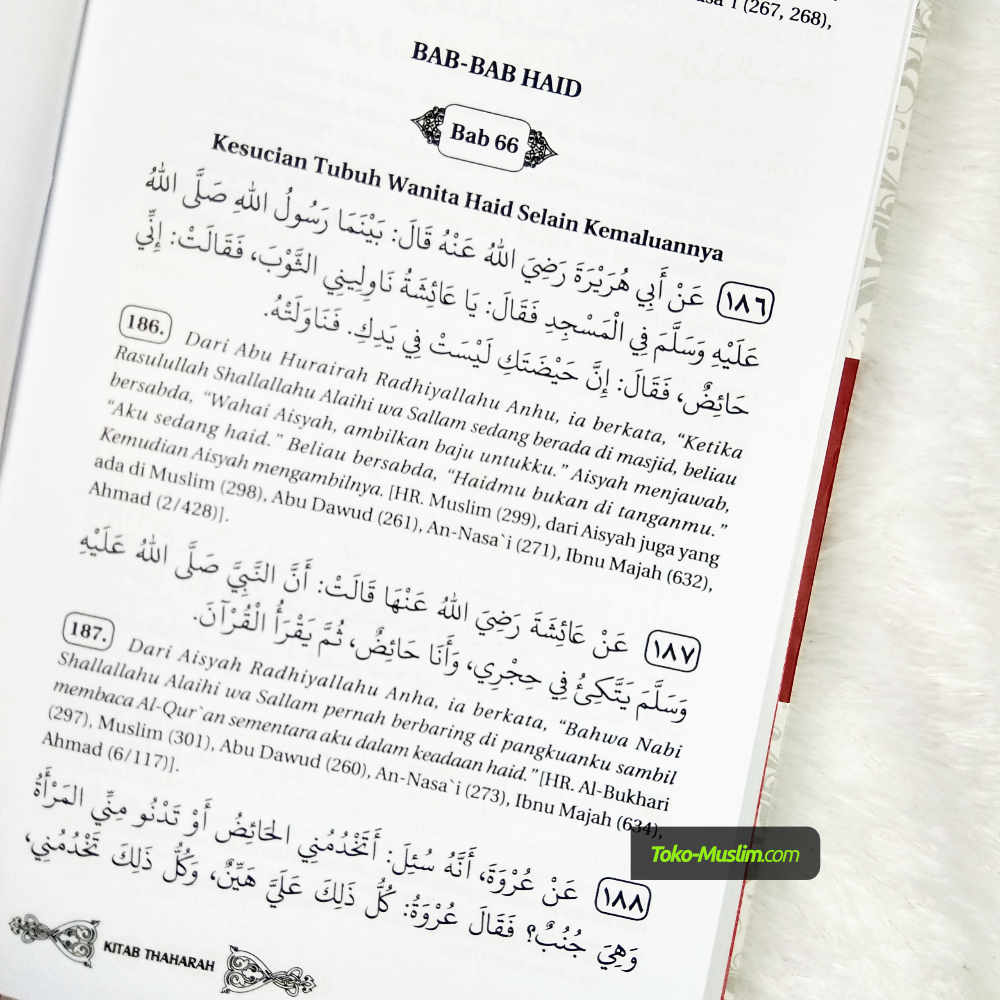 (267, 268),
BAB-BAB HAID
Bab 66
Kesucian Tubuh Wanita Haid Selain Kemaluannya
١٨٦ عَنْ أَبِي هُرَيْرَةَ رَضِيَ اللهُ عَنْهُ قَالَ: بَيْنَمَا رَسُولُ اللهِ صَلَّى اللهُ
عَلَيْهِ وَسَلَّمَ فِي الْمَسْجِدِ فَقَالَ: يَا عَائِشَةُ نَاوِلِينِي الثَّوْبَ، فَقَالَتْ: إِنِّي
حَائِضٌ، فَقَالَ: إِنَّ حَيْضَتَكِ لَيْسَتْ فِي يَدِكِ. فَنَاوَلَتْهُ.
186. Dari Abu Hurairah Radhiyallahu Anhu, ia berkata, “Ketika
Rasulullah Shallallahu Alaihi wa Sallam sedang berada di masjid, beliau
bersabda, “Wahai Aisyah, ambilkan baju untukku.” Aisyah menjawab,
“Aku sedang haid.” Beliau bersabda, “Haidmu bukan di tanganmu.”
Kemudian Aisyah mengambilnya. [HR. Muslim (299), dari Aisyah juga yang
ada di Muslim (298), Abu Dawud (261), An-Nasa`i (271), Ibnu Majah (632),
Ahmad (2/428)].
١٨٧ عَنْ عَائِشَةَ رَضِيَ اللهُ عَنْهَا قَالَتْ: أَنَّ النَّبِيَّ صَلَّى اللهُ عَلَيْهِ
وَسَلَّمَ يَتَّكِئُ فِي حِجْرِي، وَأَنَا حَائِضٌ، ثُمَّ يَقْرَأُ الْقُرْآنَ.
187. Dari Aisyah Radhiyallahu Anha, ia berkata, “Bahwa Nabi
Shallallahu Alaihi wa Sallam pernah berbaring di pangkuanku sambil
membaca Al-Qur`an sementara aku dalam keadaan haid.” [HR. Al-Bukhari
(297), Muslim (301), Abu Dawud (260), An-Nasa`i (273), Ibnu Majah (634),
Ahmad (6/117)].
١٨٨ عَنْ عُرْوَةَ، أَنَّهُ سُئِلَ: أَتَخْدُمُنِي الحَائِضُ أَوْ تَدْنُو مِنِّي المَرْأَةُ
وَهِيَ جُنُبٌ؟ فَقَالَ عُرْوَةُ: كُلُّ ذَلِكَ عَلَيَّ هَيِّنٌ، وَكُلُّ ذَلِكَ تَخْدُمُنِي،
KITAB THAHARAH
Toko-Muslim.com